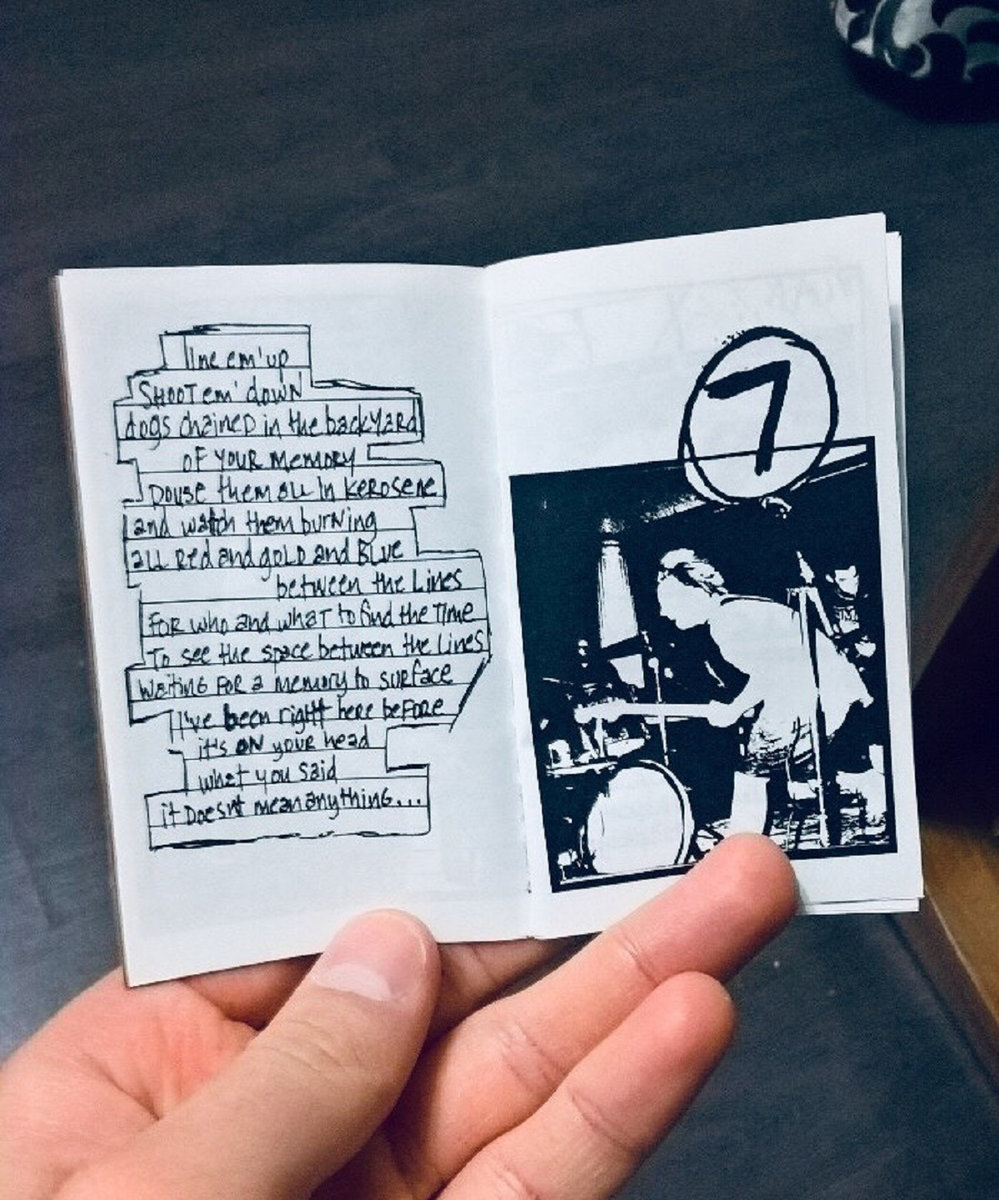 line em' up
SHOOT em' down
dogs chaineD in the backYarD
oF YOUR Memory
Douse them all in Kerosene
and watch them burning
all Red and golD and Blue
between the Lines
FOR who and whaT to find the Time
To see the space between the Lines
Waiting FOR a memory to surface
I've been right here beFore
it's ON your head
what you said
it Doesn't mean anything...
7